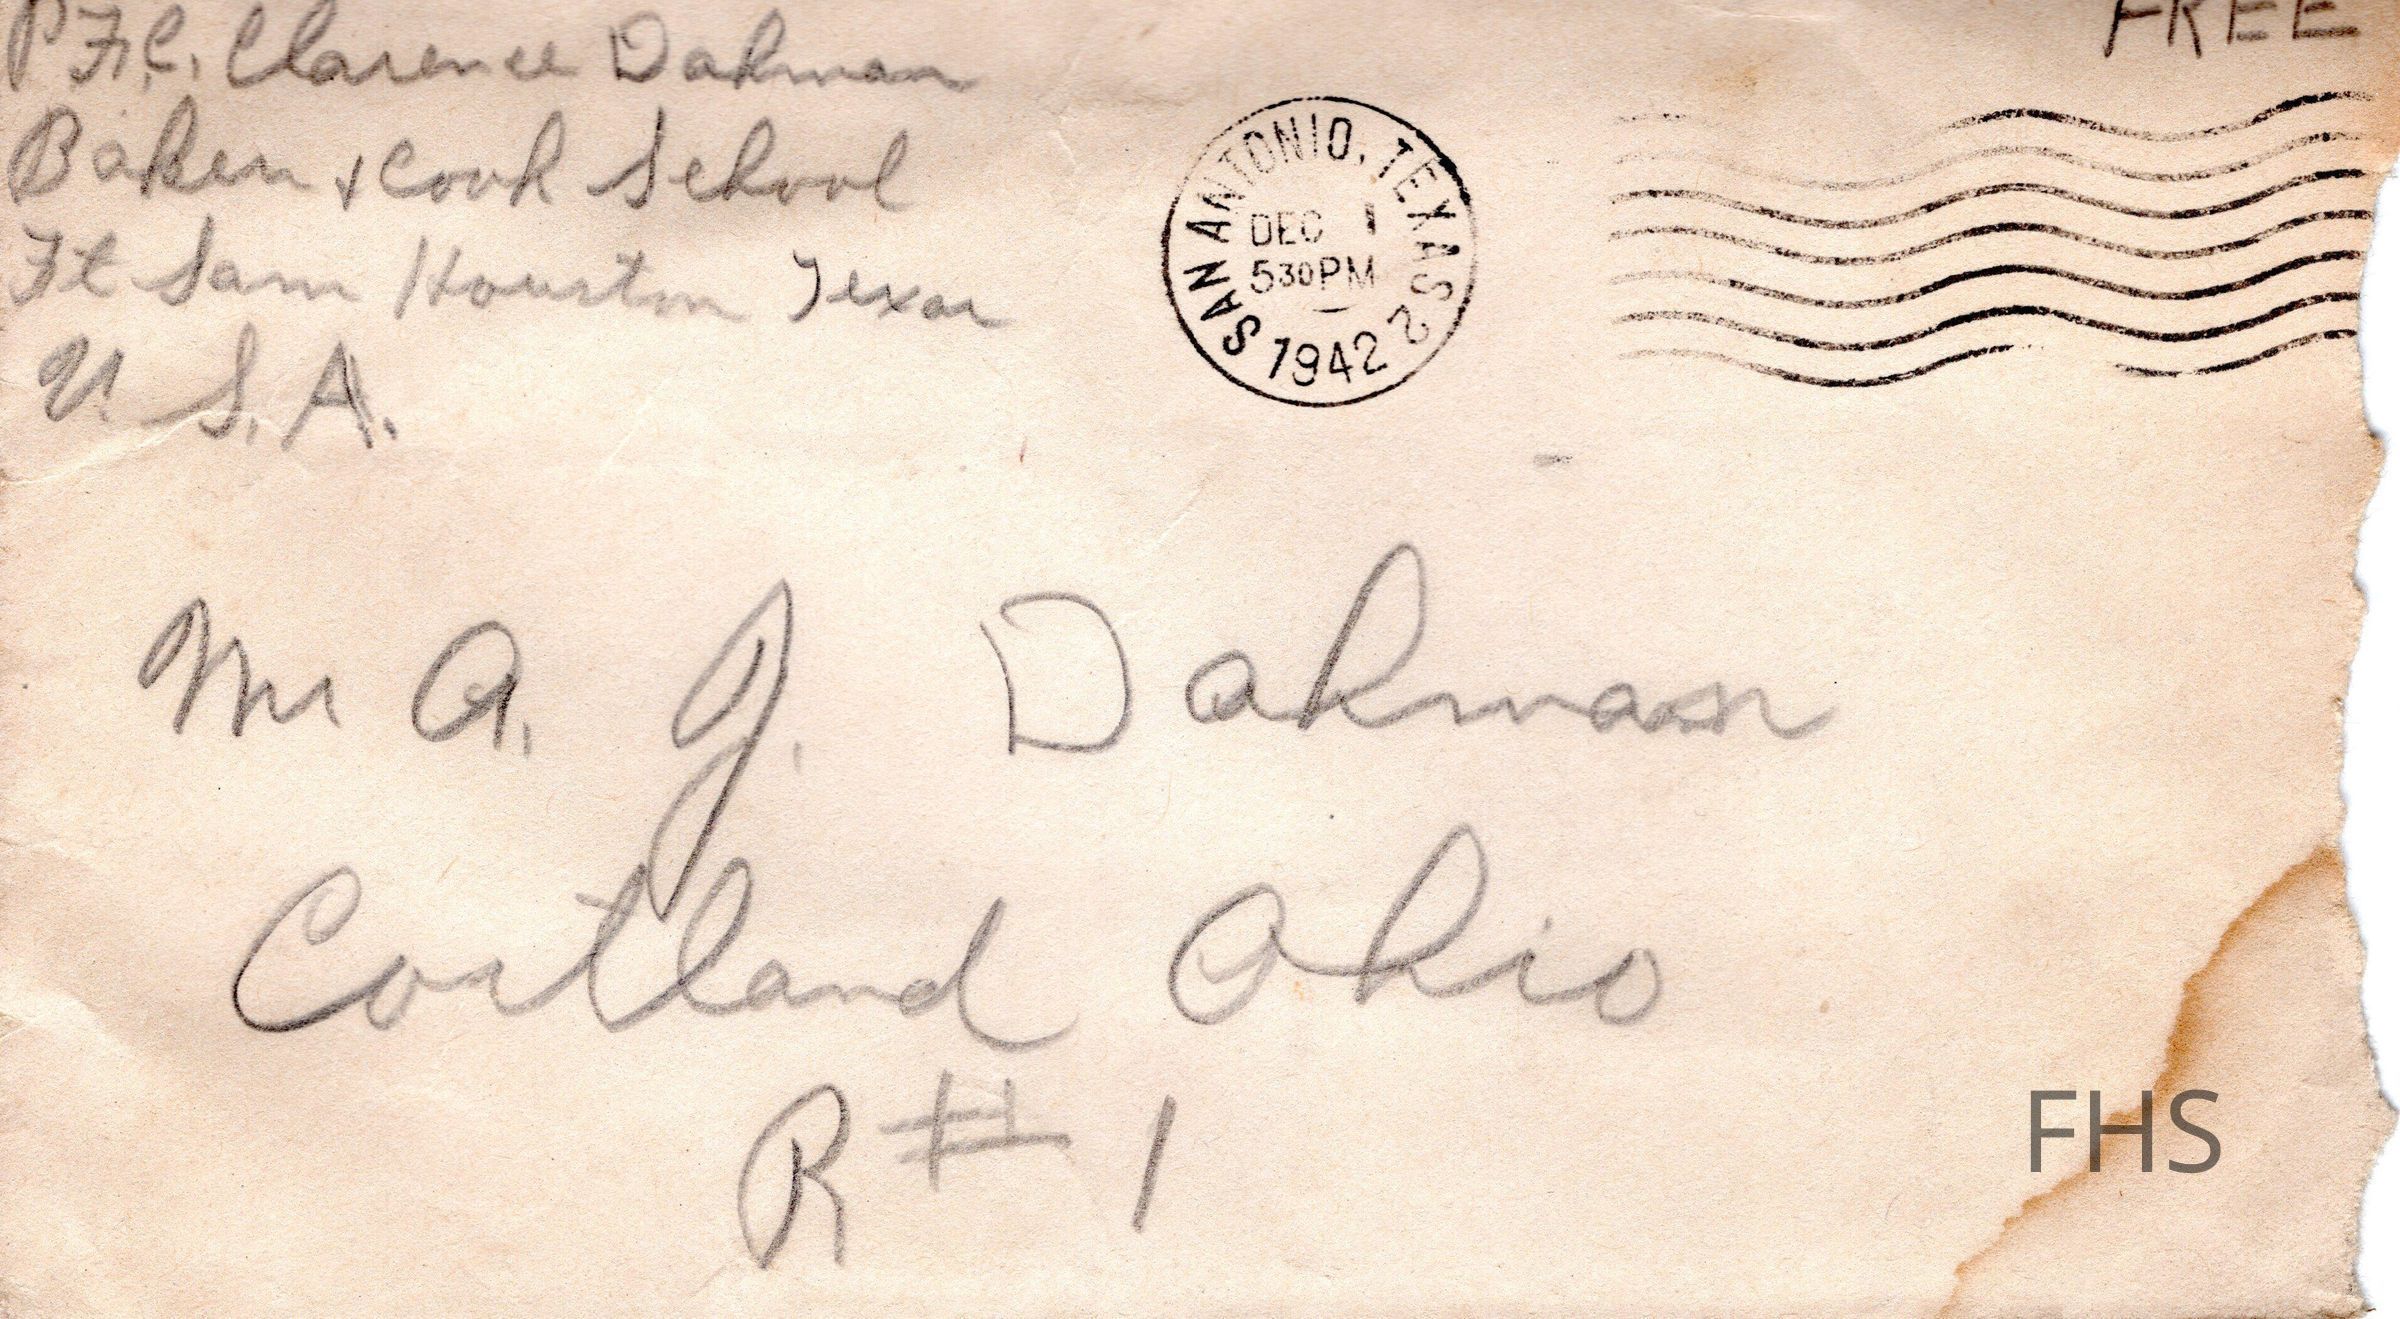 P.F.C. Clarence Dahman
Baker + Cook School
Ft Sam Houston Texas
U.S.A.
FREE
SAN ANTONIO, TEXAS 2
DEC 1
530PM
1942
Mr A. J. Dahman
Cortland Ohio
R # 1
FHS